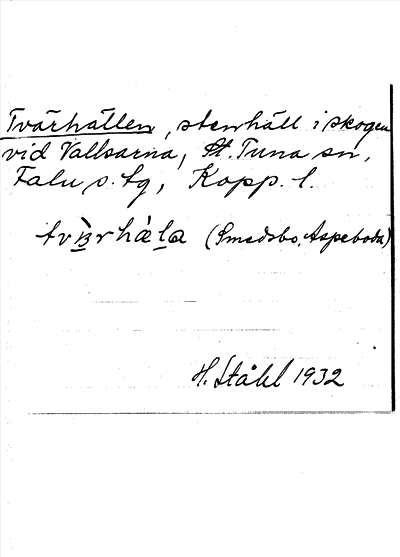 Tvärhällen, stenhäll i skogen
vid Vallsarna, St. Tuna sn,
Falu s. tg, Kopp. l.
(Smedsbo, Aspeboda)
H. Ståhl 1932